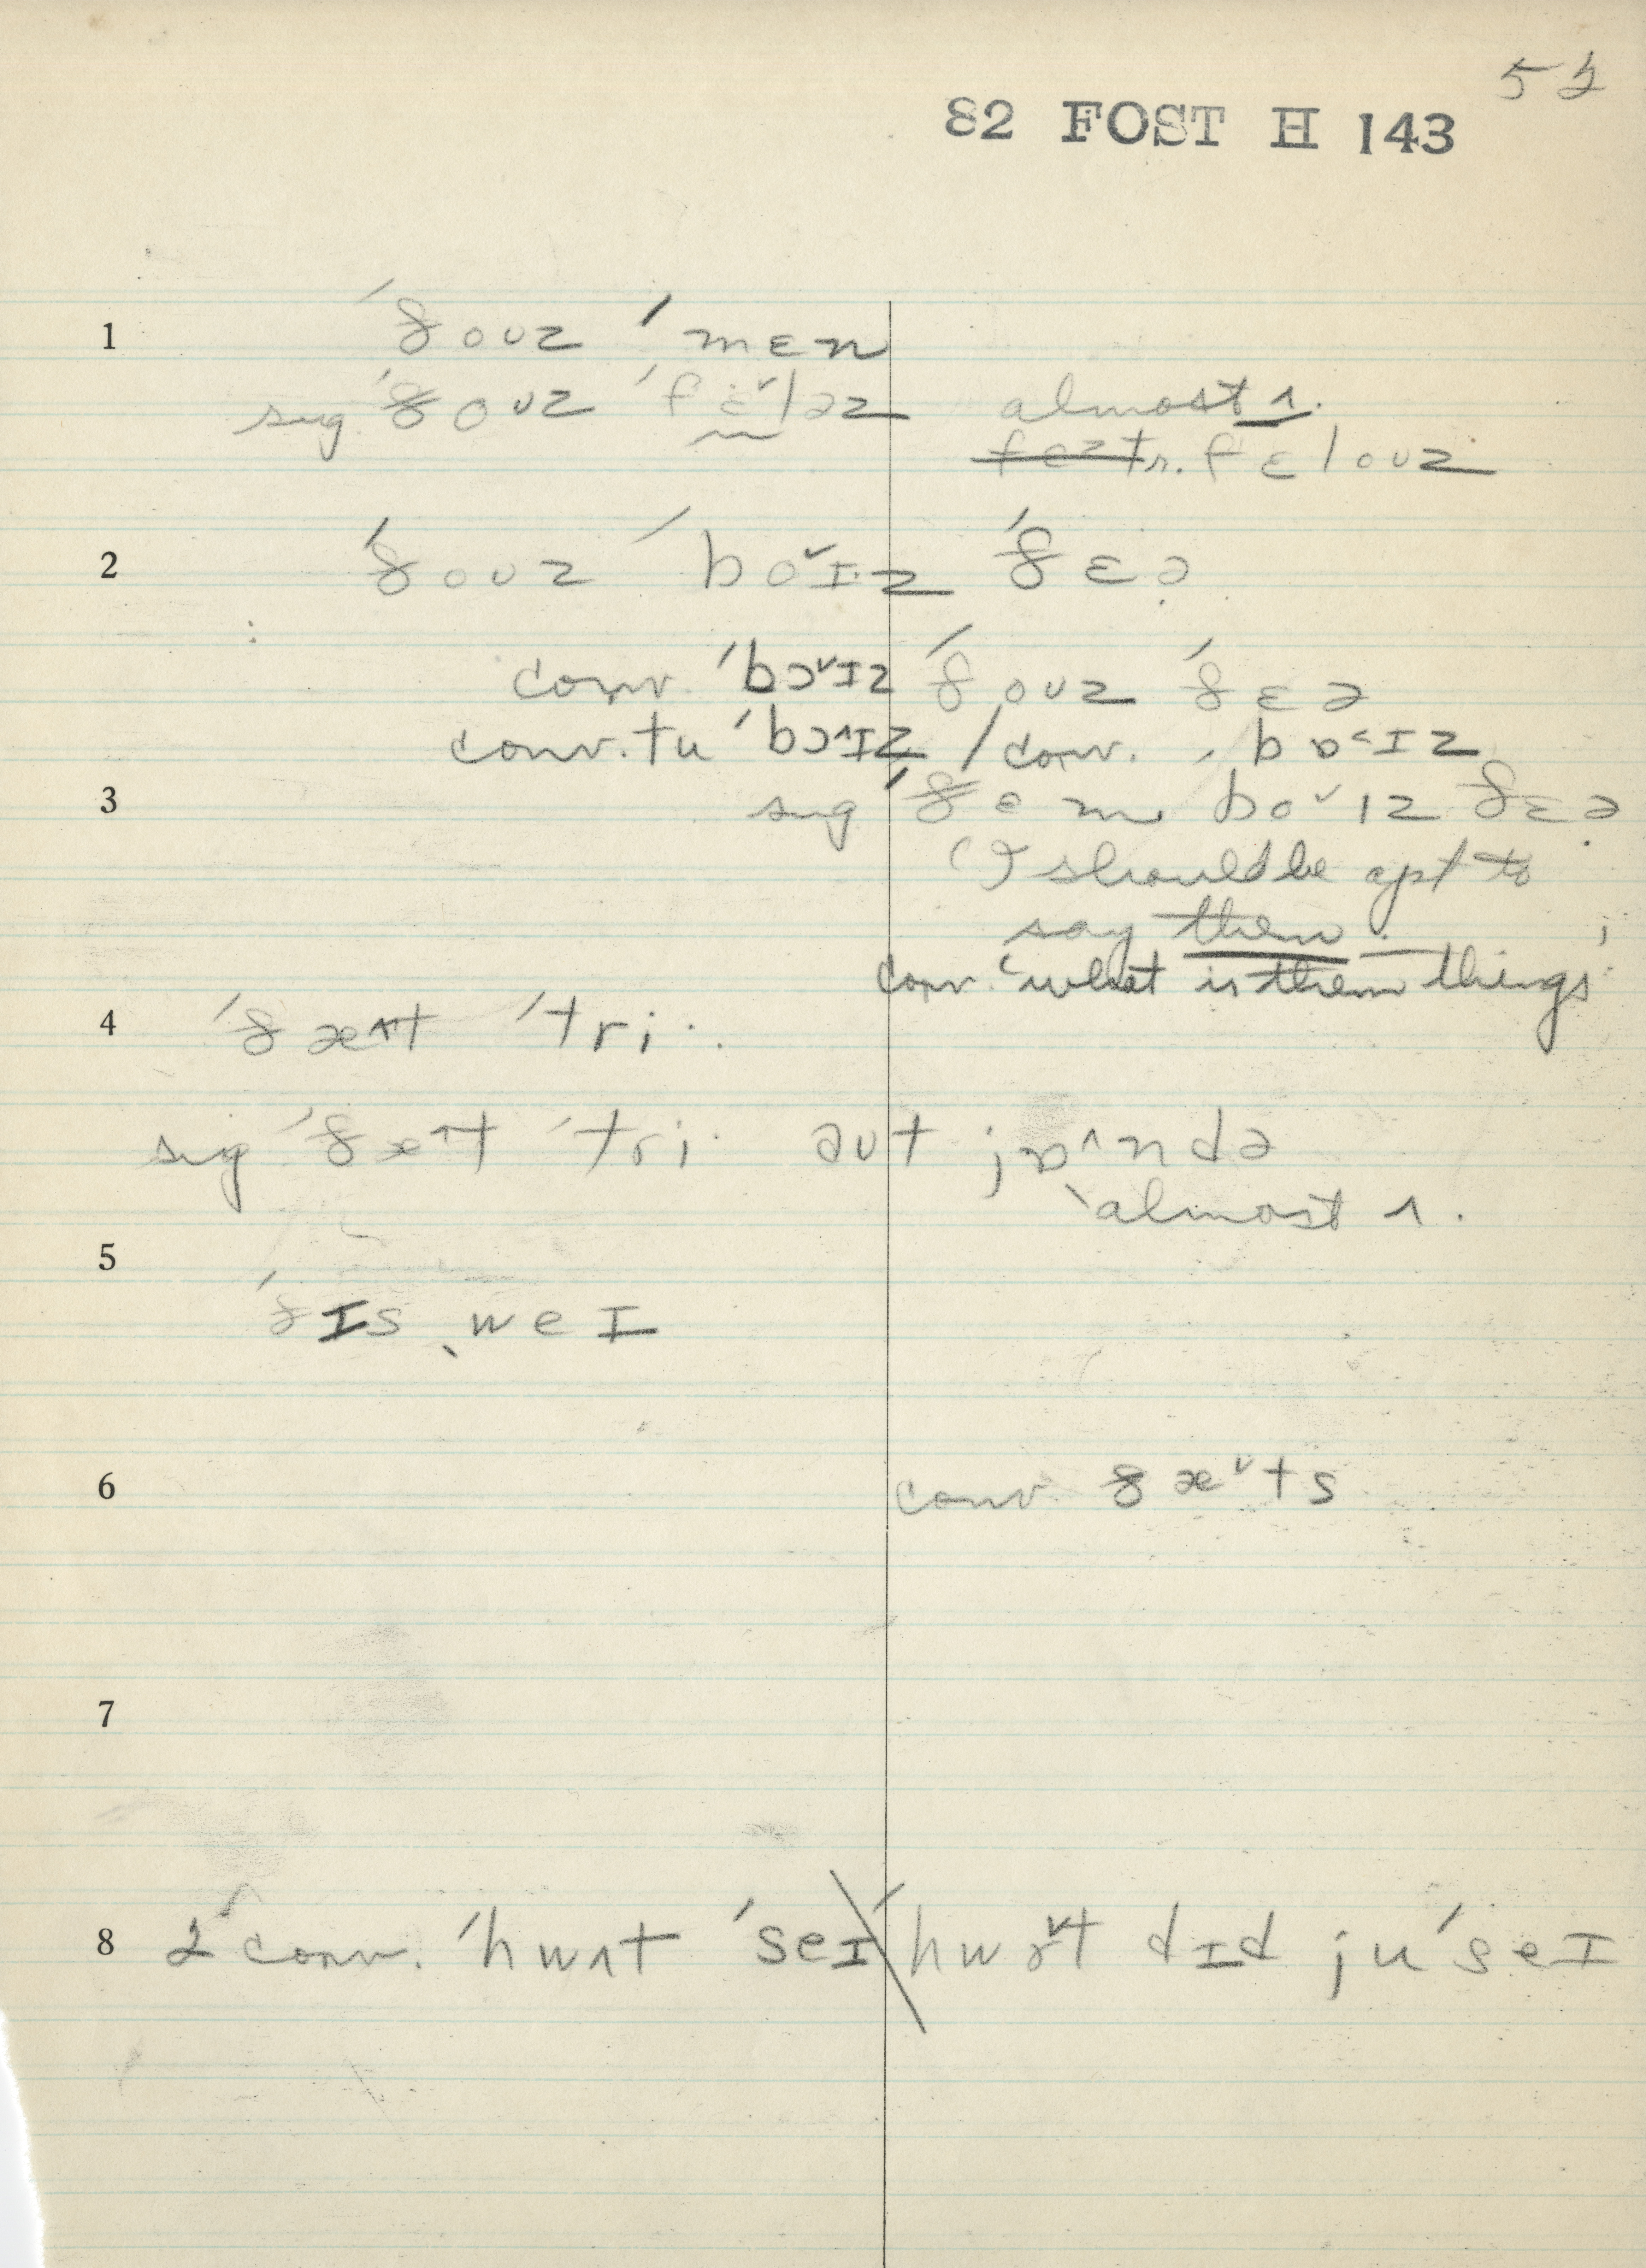 52
82 FOST H 143
1 ˈðoʊz ˈmɛn
sug ˈðoʊz ˈfɛ˅ləz almost ʌ.
r. fɛloʊz
2 ˈðoʊz ˈbo˅ɪz ˈðɛə
conv. ˈbɔ˅ɪz ˈðoʊz ˈðɛə
conv. tu ˈbɔ˄ɪz / conv. ˈbɒ˂ɪz
3 sug ˈðəm bo˅ɪz ðɛə
(I should be apt to
say them.
conv. 'what is them things'
4 ˈðæ˄t ˈtri·
sug ˈðæ˄t ˈtri· əʊt jɒ˄ndə
almost ʌ.
5
ˈðɪs ˌweɪ
6 conv ðæ˅ts
7
8 2 conv. ˈhwʌt ˈseɪ \ ˈhwɒ˅t dɪd juˈseɪ